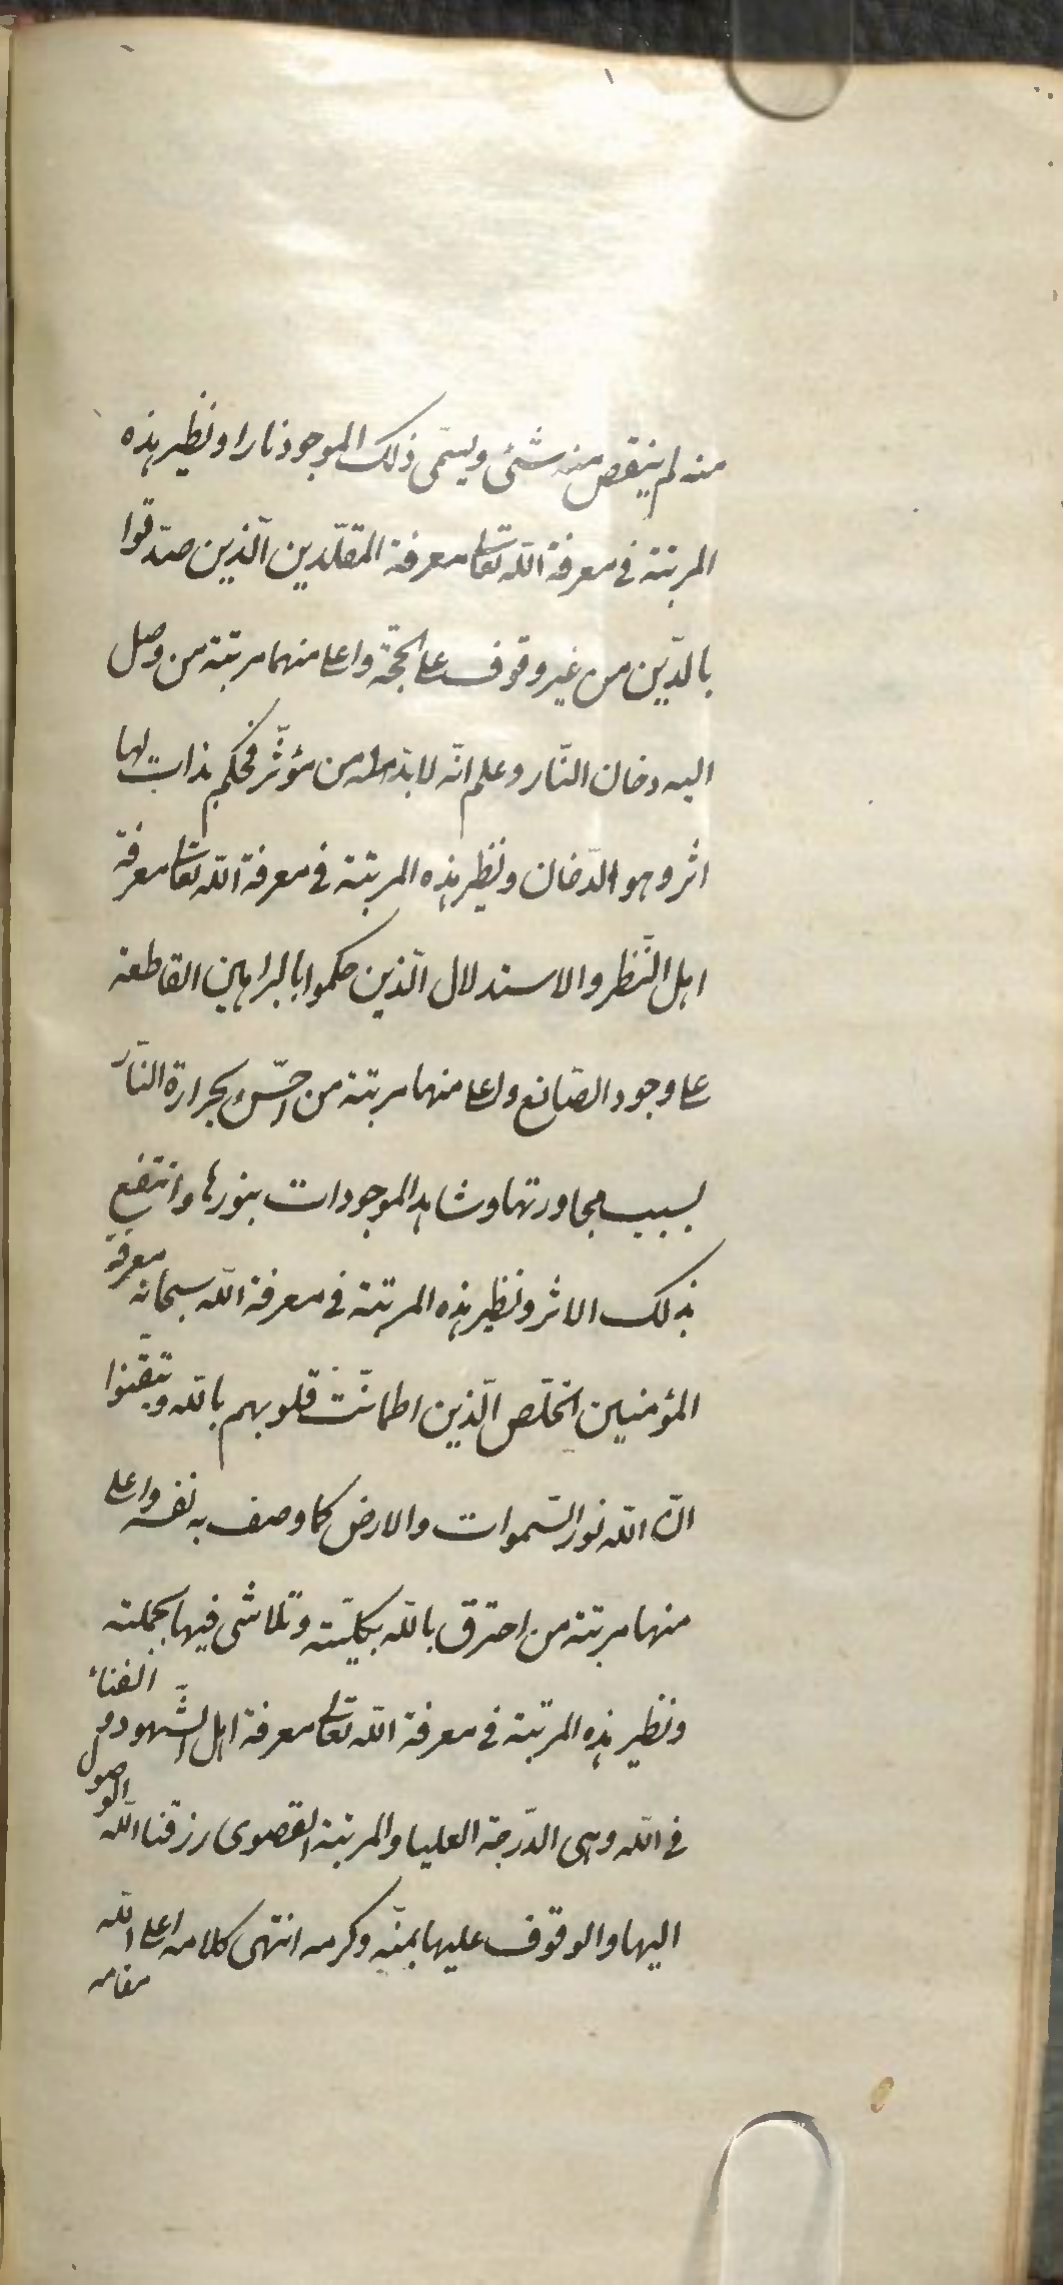 منه لم ينقص منه شئ ويسمّى ذلك الموجود نارا ونظير هذه
المرتبة فى معرفة الله تعا معرفة المقلّدين الّذين صدّقوا
بالدّين من غير وقوف على الحجّة واعلى منهما مرتبة من وصل
اليه دخان النّار وعلم انّه لا بدّ له من مؤثّر فحكم بذات لها
اثر وهو الدّخان ونظير هذه المرتبة فى معرفة الله تعا معرفة
اهل النّظر والاستدلال الّذين حكموا بالبراهين القاطعة
على وجود الصّانع واعلى منهما مرتبة من احسّ بحرارة النّار
بسبب مجاورتها وشاهد الموجودات بنورها وانتفع
بذلك الاثر ونظير هذه المرتبة فى معرفة الله سبحانه معرفة
المؤمنين الخلّص الّذين اطمانّت قلوبهم بالله وتيقّنوا
انّ الله نور السّموات والارض كما وصف به نفسه واعلى
منها مرتبة من احترق بالله بكليّته وتلاشى فيها بجملته
ونظير هذه المرتبة فى معرفة الله تعالى معرفة اهل الشّهود و الفناء
فى الله وهى الدّرجة العليا والمرتبة القصوى رزقنا الله الوصول
اليها والوقوف عليها بمنّه وكرمه انتهى كلامه اعلى الله
مقامه